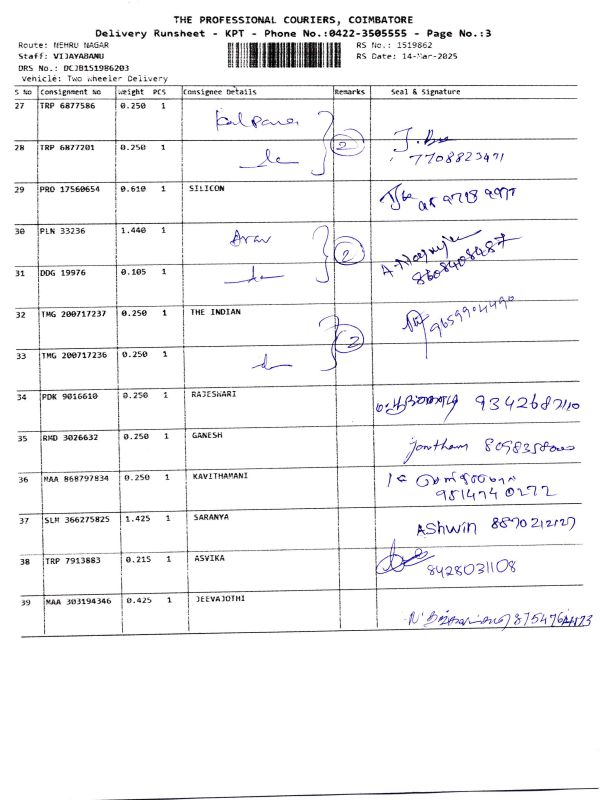 THE PROFESSIONAL COURIERS, COIMBATORE
Delivery Runsheet - KPT - Phone No.:0422-3505555 - Page No.:3
Route: NEHRU NAGAR RS No.: 1519862
Staff: VIJAYABANU RS Date: 14-Mar-2025
DRS No.: DCJB151986203
Vehicle: Two Wheeler Delivery
S No Consignment No Weight PCS Consignee Details Remarks Seal & Signature
27 TRP 6877586 0.250 1 Kalpana
28 TRP 6877201 0.250 1 2 7708823471
29 PRO 17560654 0.610 1 SILICON
30 PLN 33236 1.440 1 Arav
31 DDG 19976 0.105 1 2 8608408487
32 TMG 200717237 0.250 1 THE INDIAN 9659904490
33 TMG 200717236 0.250 1 2
34 PDK 9016610 0.250 1 RAJESWARI
35 RMD 3026632 0.250 1 GANESH
36 MAA 868797834 0.250 1 KAVITHAMANI
37 SLM 366275825 1.425 1 SARANYA AShwin 8870212127
38 TRP 7913883 0.215 1 ASVIKA 8428031108
39 MAA 303194346 0.425 1 JEEVAJOTHI